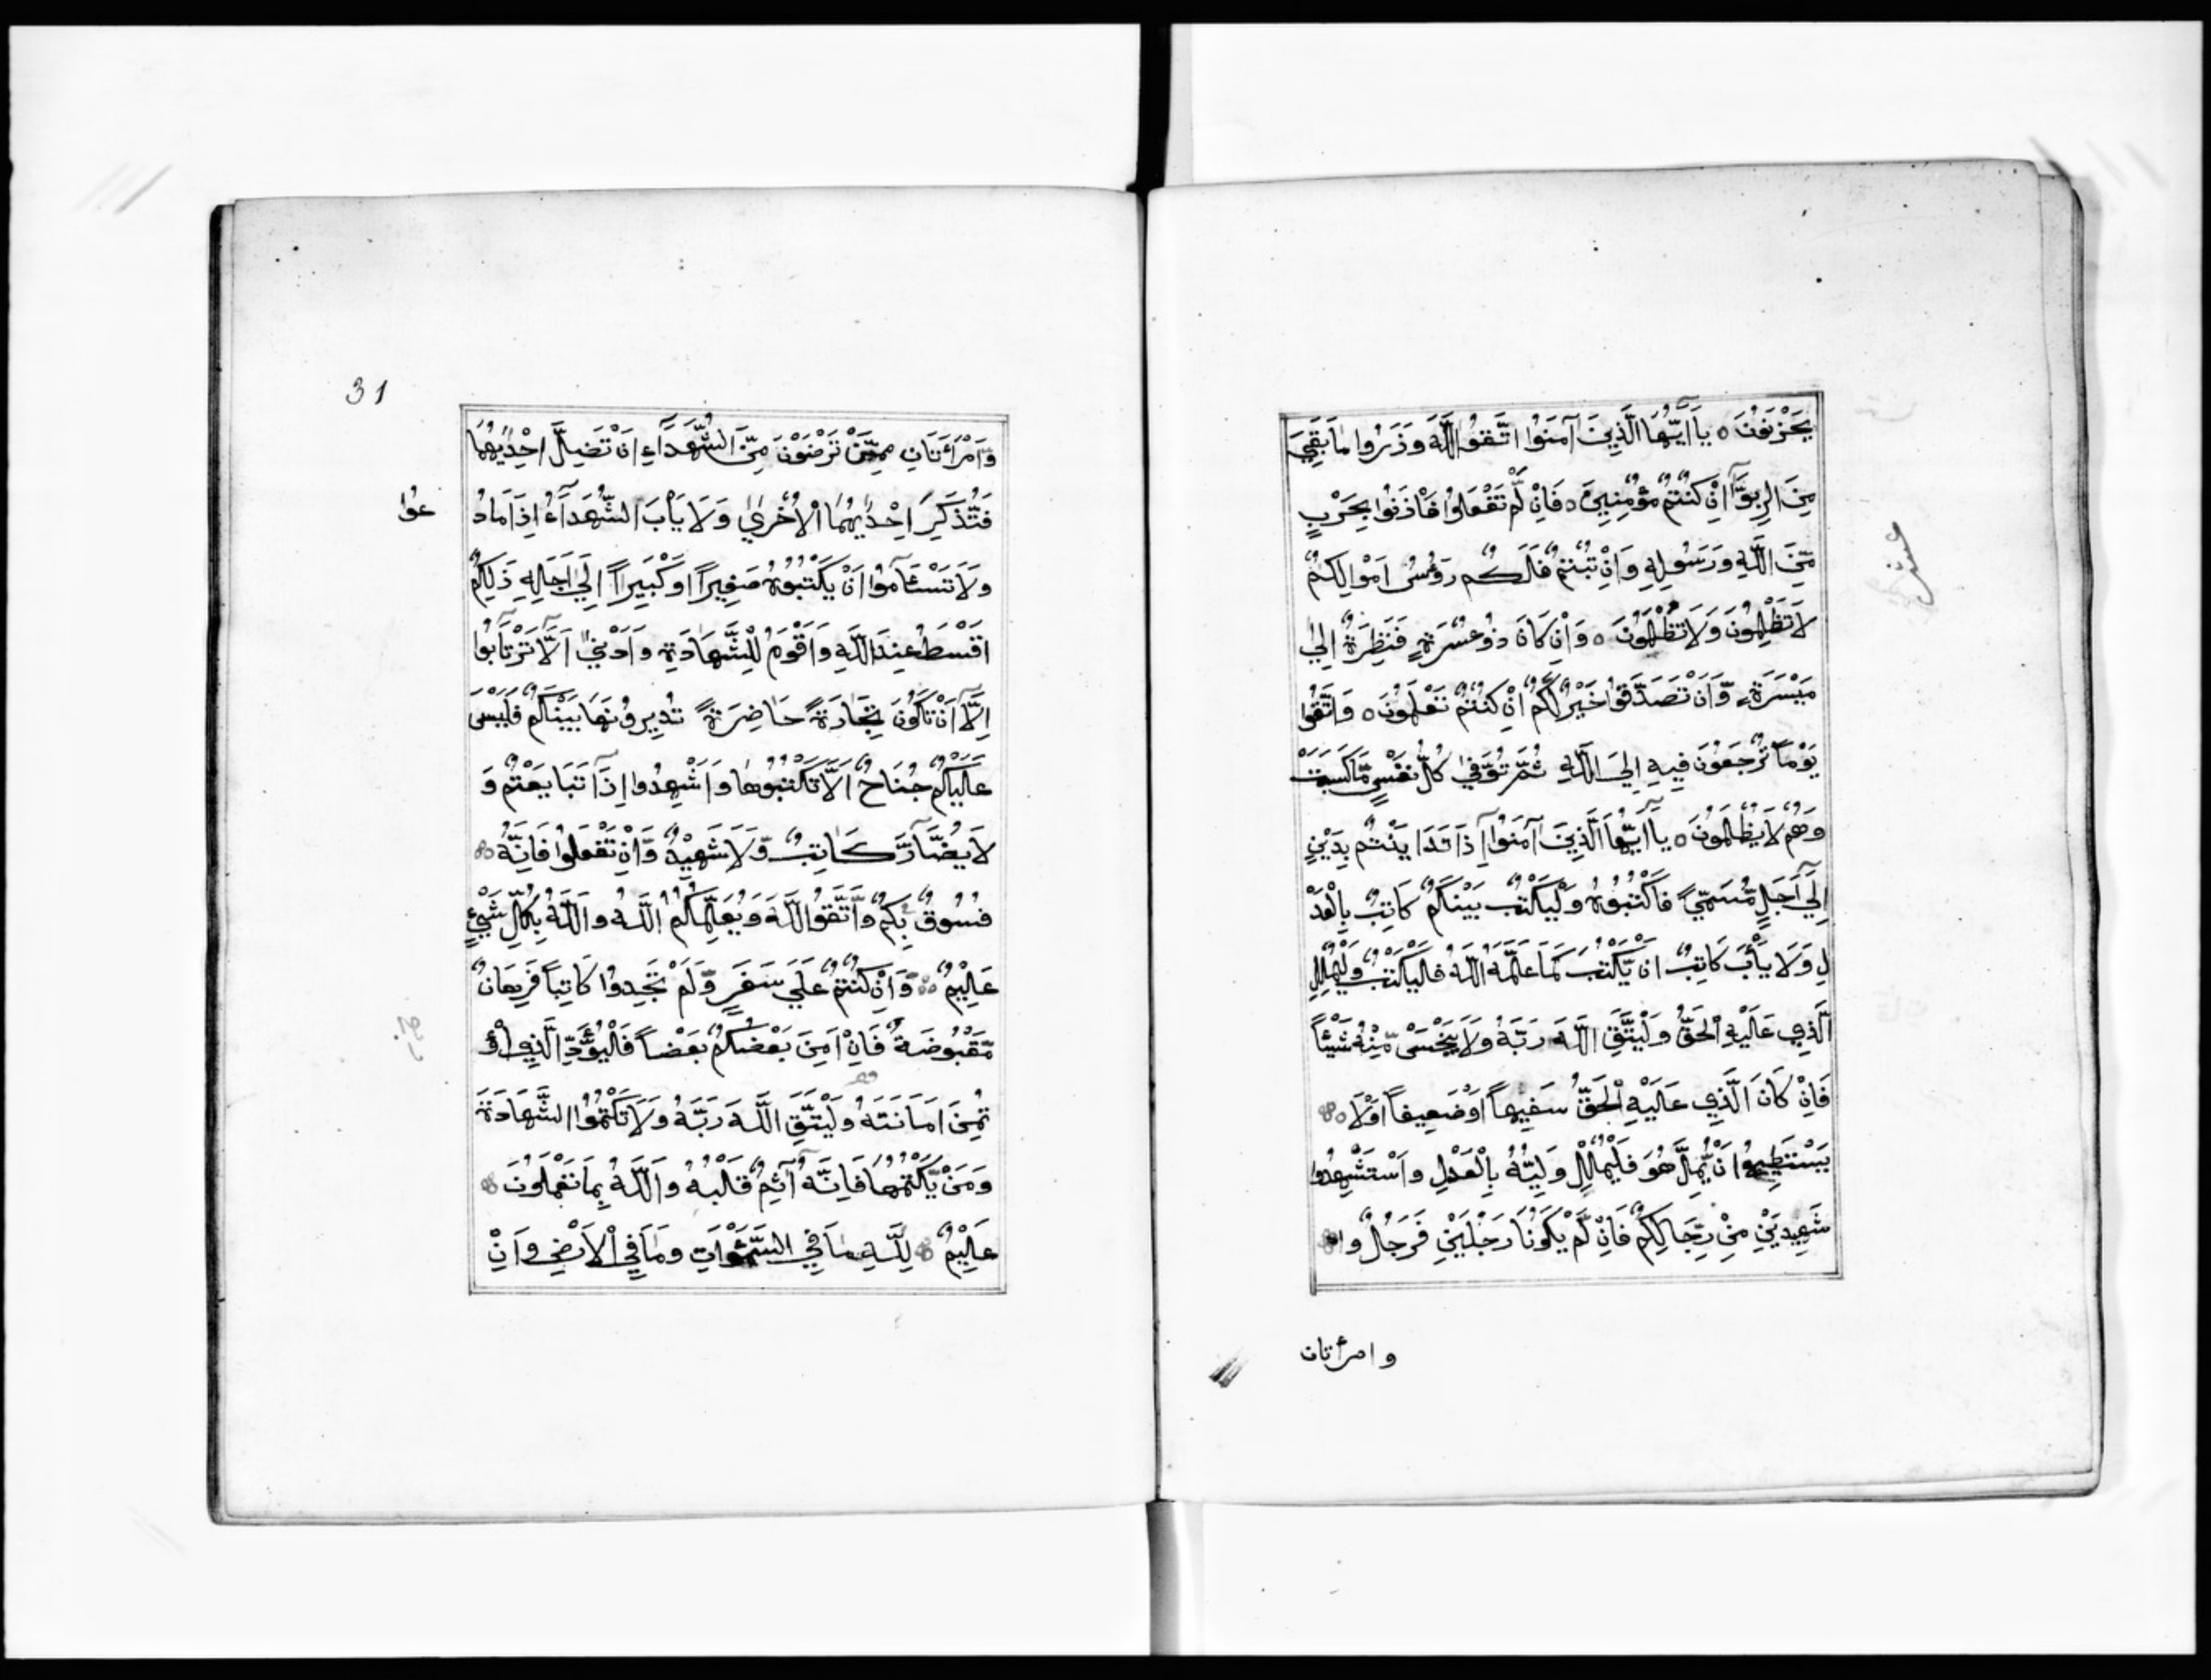 يَحْزَنُونَ ٥ يَآ اَيُّهَا الَّذِينَ آمَنُوا اتَّقُوا اللَّهَ وَذَرُوا مَا بَقِيَ
مِنَ الرِّبوَّا اِنْ كُنْتُمْ مُؤْمِنِينَ ٥ فَاِنْ لَّمْ تَفْعَلُوا فَأْذَنُوا بِحَرْبٍ
مِّنَ اللَّهِ وَرَسُولِهِ وَاِنْ تُبْتُمْ فَلَكُم رَؤُسُ اَمْوَالِكُمْ
لَا تَظْلِمُونَ وَلَا تُظْلَمُونَ ٥ وَاِنْ كَانَ ذُو عُسْرَةٍ فَنَظِرَةٌ اِلىٰ
مَيْسَرَةٍ وَّاَنْ تَصَدَّقُوا خَيْرٌ لَّكُمْ اِنْ كُنْتُمْ تَعْلَمُونَ ٥ وَاتَّقُوا
يَوْماً تُرْجَعُونَ فِيهِ اِلَى اللَّهِ ثُمَّ تُوَفّىٰ كُلُّ نَفْسٍ مَّا كَسَبَتْ
وَهُمْ لَا يُظْلَمُونَ ٥ يَآ اَيُّهَا الَّذِينَ آمَنُوآ اِذَا تَدَايَنْتُم بِدَيْنٍ
اِلَىٰ اَجَلٍ مُّسَمّيً فَاكْتُبُوهُ وَلْيَكْتُب بَيْنَكُمْ كَاتِبٌ بِالْعَدْ
لِ وَلَا يَأْبَ كَاتِبٌ اَنْ يَّكْتُبَ كَمَا عَلَّمَهُ اللَّهُ فَلْيَكْتُبْ وَلْيُمْلِلِ
الَّذِي عَلَيْهِ الْحَقُّ وَلْيَتَّقِ اللَّهَ رَبَّهُ وَلَا يَبْخَسْ مِنْهُ شَيْئاً
فَاِنْ كَانَ الَّذِي عَلَيْهِ الْحَقُّ سَفِيهاً اَوْ ضَعِيفاً اَوْ لَا
يَسْتَطِيعُ اَنْ يُّمِلَّ هُوَ فَلْيُمْلِلْ وَلِيُّهُ بِالْعَدْلِ وَاسْتَشْهِدُوا
شَهِيدَيْنِ مِنْ رِّجَالِكُمْ فَاِنْ لَّمْ يَكُونَا رَجُلَيْنِ فَرَجُلٌ وا
عشر
وامرأتان
31
وَّامْرَأَتَانِ مِمَّنْ تَرْضَوْنَ مِنَ الشُّهَدَآءِ اَنْ تَضِلَّ اِحْدٰيهُمَا
فَتُذَكِّرَ اِحْدٰيهُمَا الْاُخْرىٰ وَلَا يَأْبَ الشُّهَدَآءُ اِذَا مَا دُ
عُوْا
وَلَا تَسْئَامُوا اَنْ يَكْتُبُوهُ صَغِيراً اَوْ كَبِيراً اِلىٰ اَجَلِهِ ذَلِكُمْ
اَقْسَطُ عِنْدَ اللَّهِ وَاَقْوَمُ لِلشَّهَادَةِ وَاَدْنىٰ اَلَّا تَرْتَابُوا
اِلَّا اَنْ تَكُونَ تِجَارَةً حَاضِرَةً تُدِيرُونَهَا بَيْنَكُمْ فَلَيْسَ
عَلَيْكُمْ جُنَاحٌ اَلَّا تَكْتُبُوهَا وَاَشْهِدُوا اِذَا تَبَايَعْتُمْ وَ
لَا يُضَارَّ كَاتِبٌ وَّلَا شَهِيْدٌ وَّاِنْ تَفْعَلُوا فَاِنَّهُ
فُسُوقٌ بِكُمْ وَاتَّقُوا اللَّهَ وَيُعَلِّمُكُمُ اللَّهُ وَاللَّهُ بِكُلِّ شَيْءٍ
عَلِيْمٌ وَّاِنْ كُنْتُمْ عَلَى سَفَرٍ وَّلَمْ تَجِدُوا كَاتِباً فَرِهَانٌ
مَّقْبُوضَةٌ فَاِنْ اَمِنَ بَعْضُكُمْ بَعْضاً فَلْيُؤَدِّ الَّذِي اؤْ
تُمِنَ اَمَانَتَهُ وَلْيَتَّقِ اللَّهَ رَبَّهُ وَلَا تَكْتُمُوا الشَّهَادَةَ
وَمَنْ يَّكْتُمْهَا فَاِنَّهُ آثِمٌ قَلْبُهُ وَاللَّهُ بِمَا تَعْمَلُونَ
عَلِيْمٌ لِلَّهِ مَا فِي السَّمٰوَاتِ وَمَا فِي الْاَرْضِ وَاِنْ